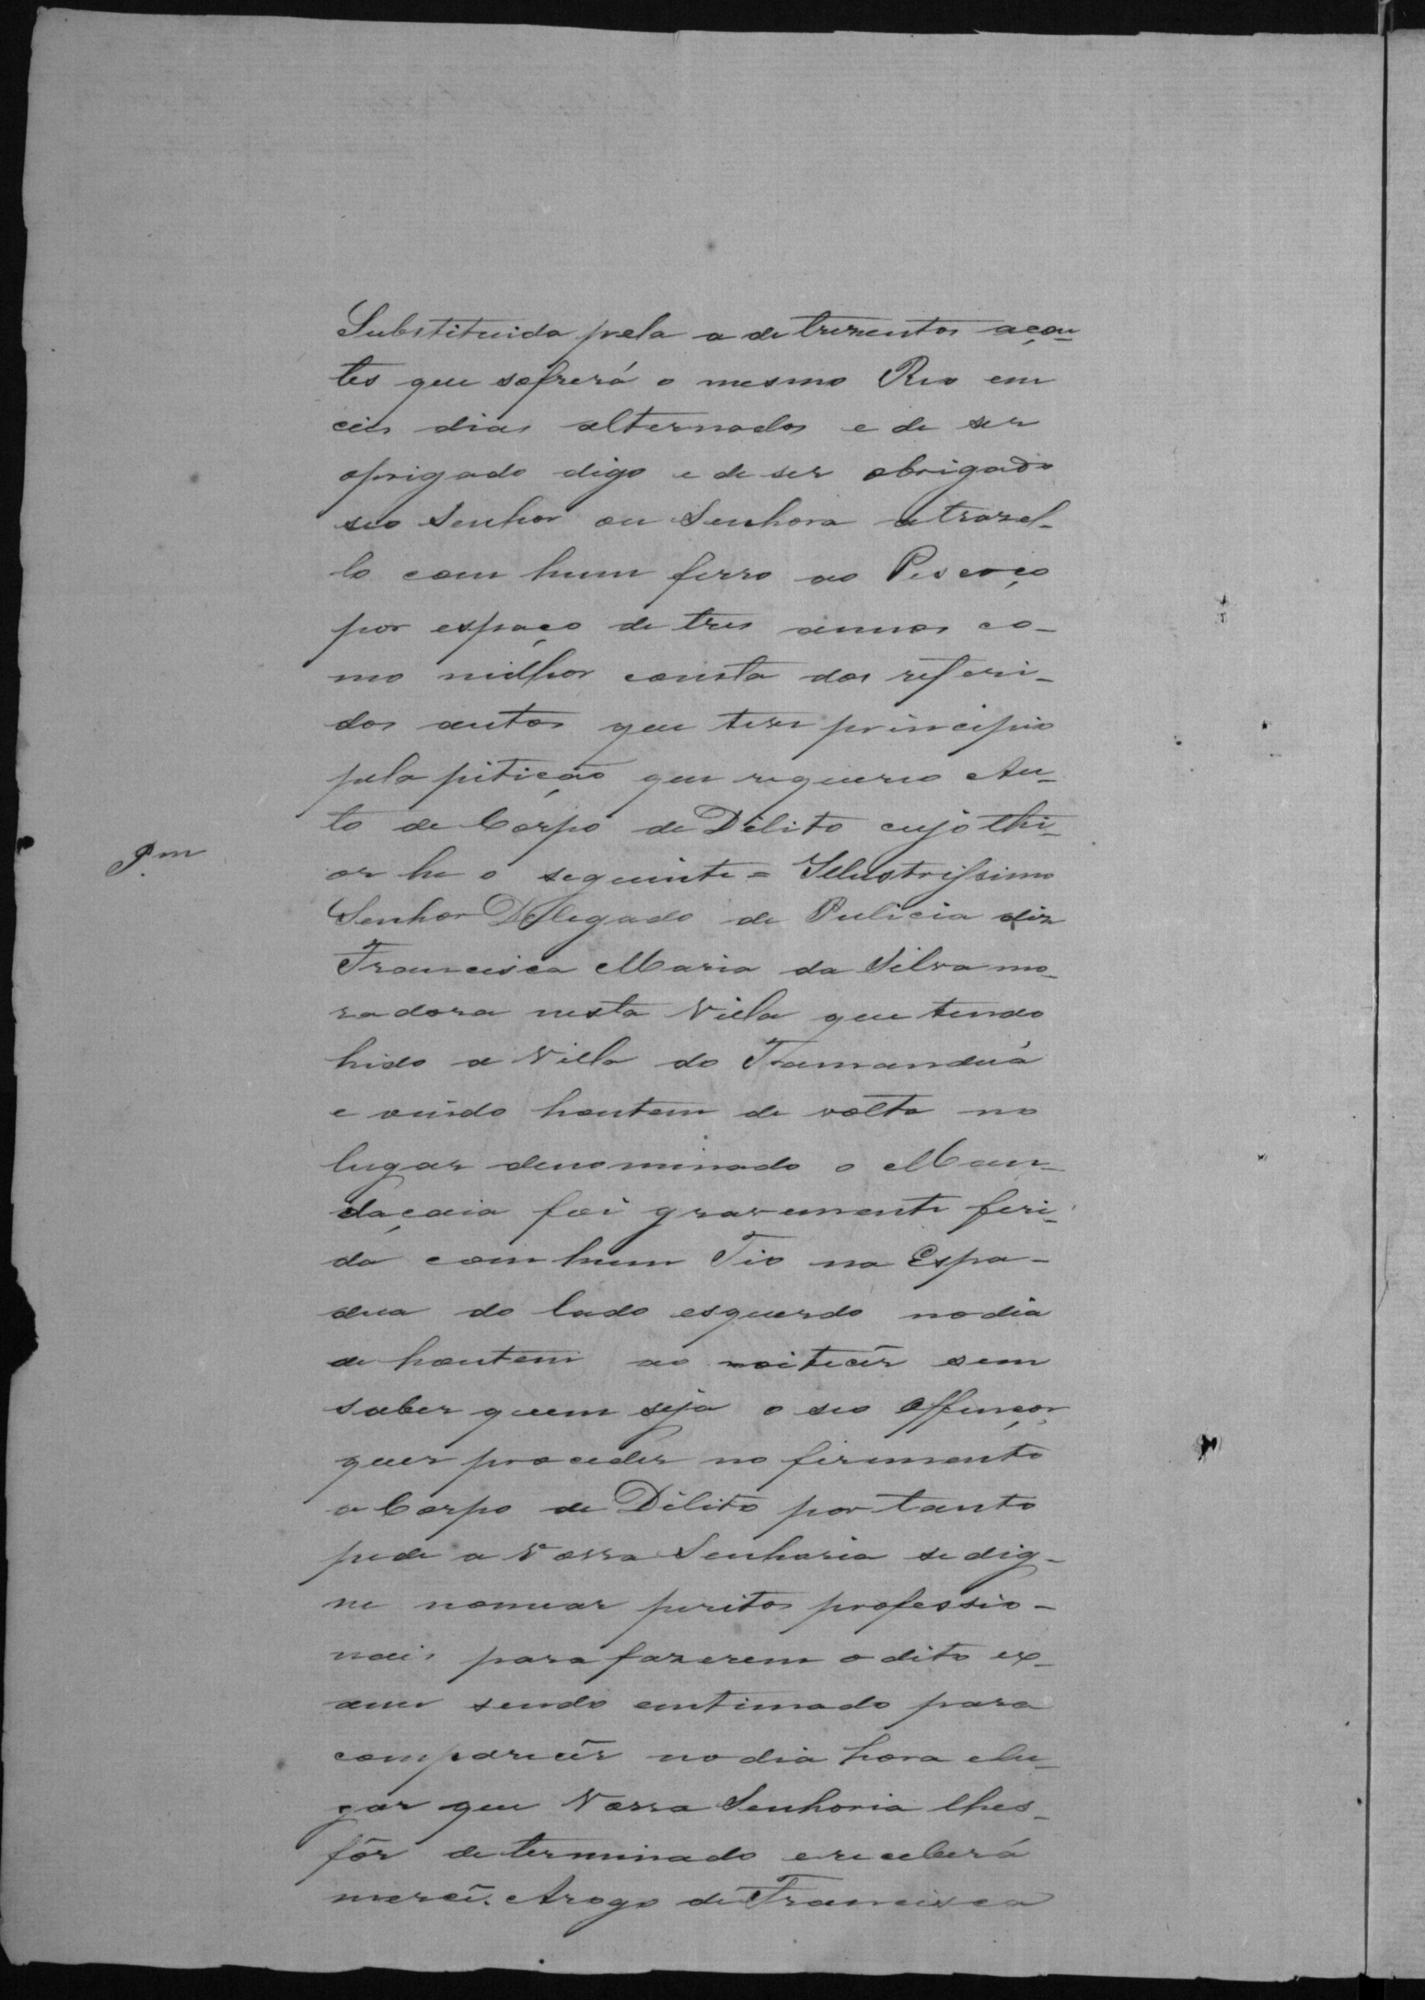 Substituida pela a de trezentos açou-
tes que sofrerá o mesmo Reo em
ceis dias alternados e de ser
oprigado digo e de ser obrigado
seo Senhor ou Senhora a trazel-
lo com hum ferro ao Pescoço
por espaço de tres annos co-
mo milhor consta dos referi-
dos autos que teve principio
pela pitição que requereo Au-
to de Corpo de Delito cujo thi-
or he o seguinte = Illustrissimo
P.m
Senhor Delegado de Pulicia diz
Francisca Maria da Silva mo-
radora nesta Villa que tendo
hido a Villa do Tamanduá
e vindo hontem de volta no
lugar denominado o Man-
daçaia foi gravemente feri-
da com hum Tio na Espa-
dua do lado esquerdo no dia
de hontem ao noitecêr sem
saber quem seja o seo Offençor
quer proceder no ferimento
a Corpo de Delito por tanto
pede a Vossa Senhoria se dig-
ne nomear peritos professio-
nais para fazerem o dito ex-
ame sendo entimado para
comparecêr no dia hora elu-
gar que Vossa Senhoria lhes
fôr determinado e receberá
mercê. Arogo de Francisca